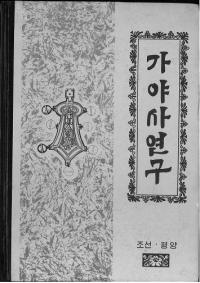 가야사연구
조선·평양